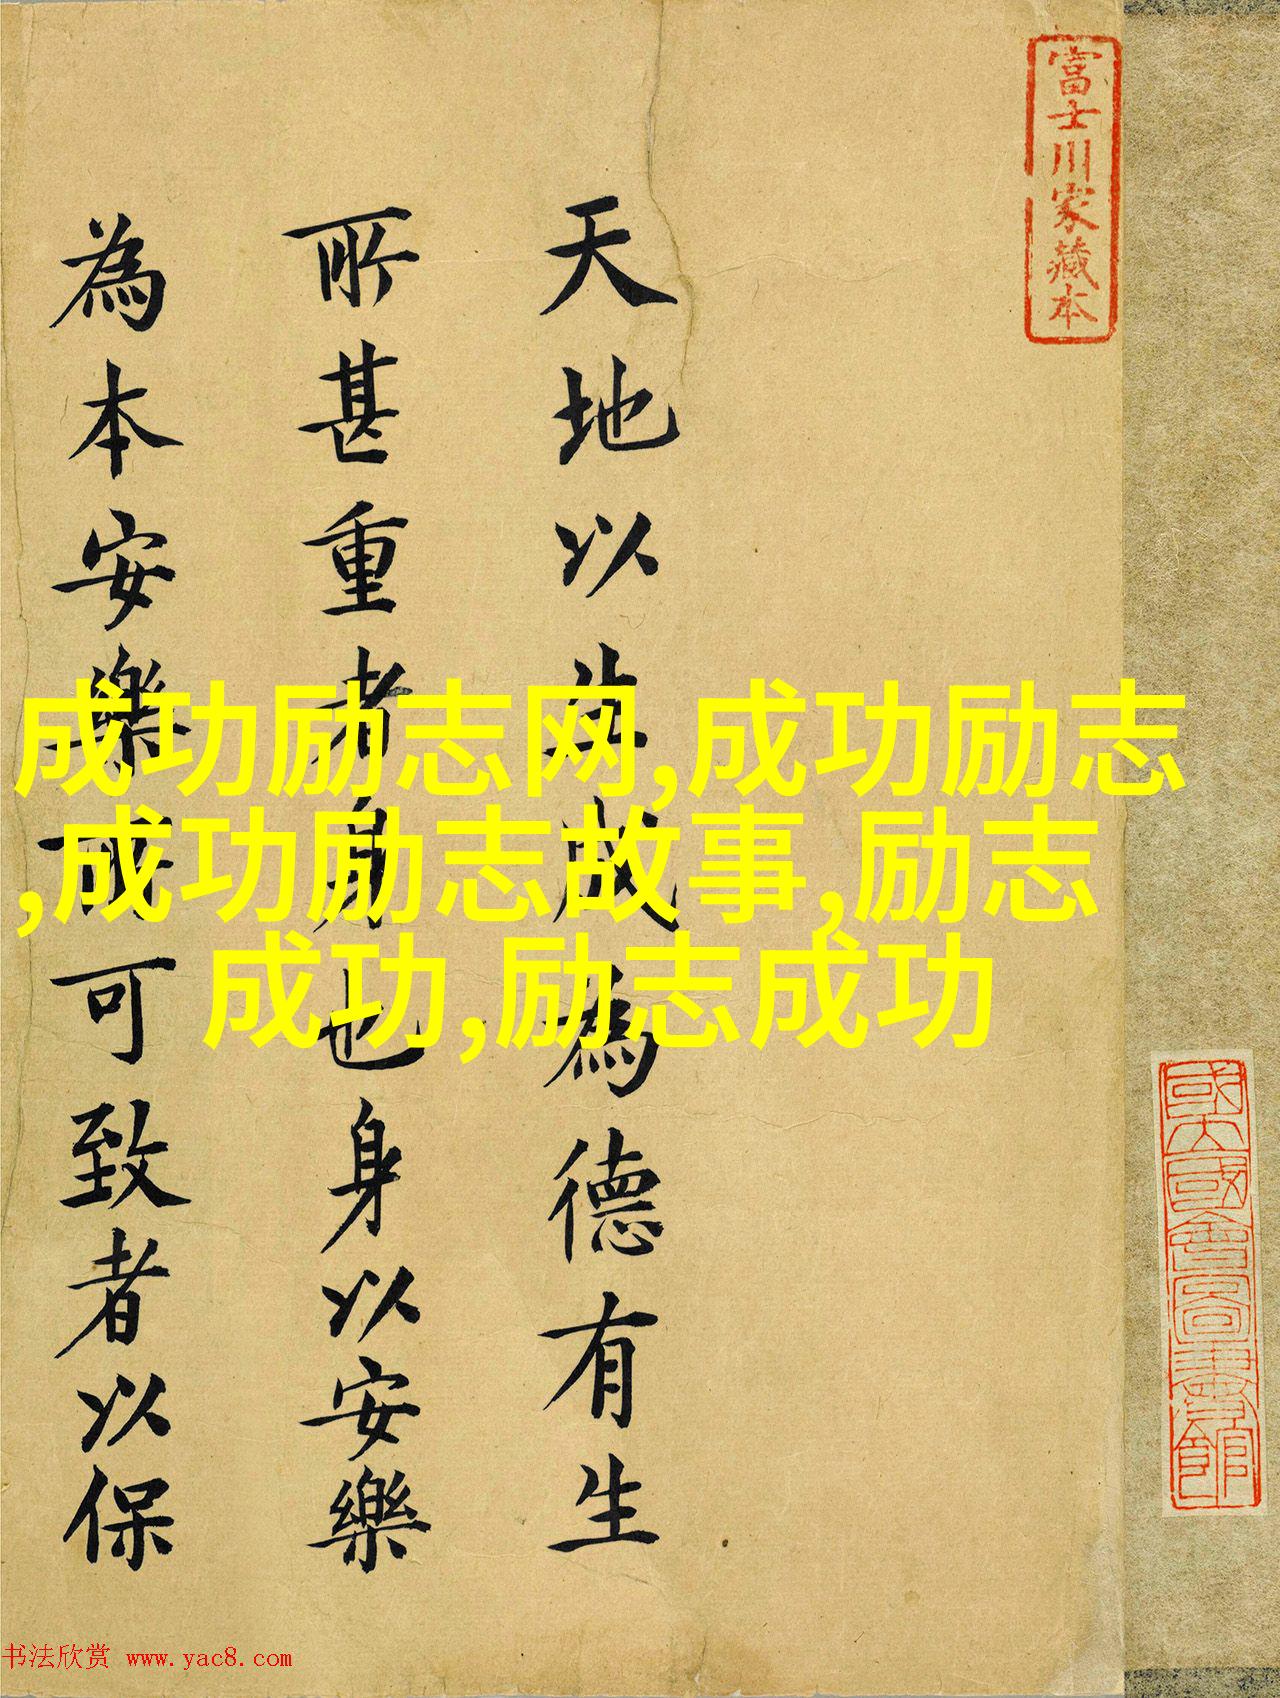 富士川家藏本
天地以生成為德有生
所甚重者身也身以安樂
為本安樂所可致者以保
成功励志网,成功励志
,成功励志故事,励志
成功,励志成功
國立國會圖書館藏
书法欣赏 www.yac8.com